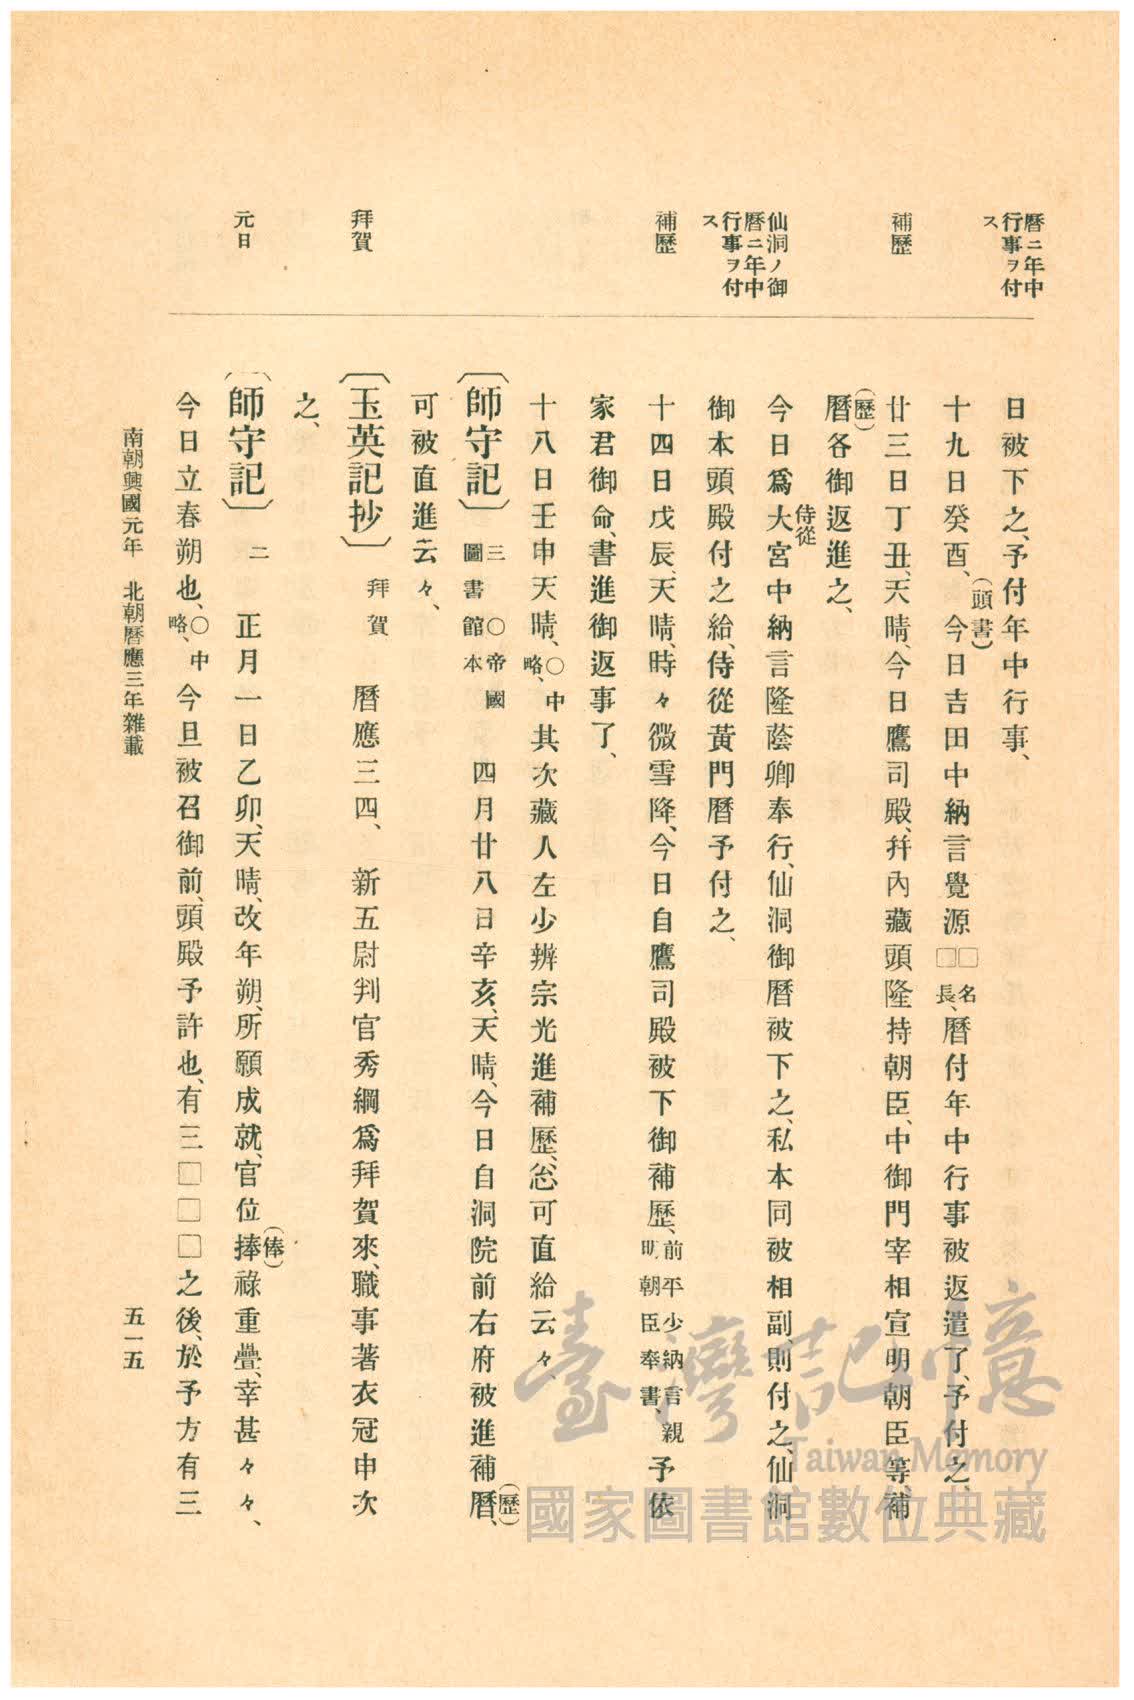 暦ニ年中
行事ヲ付
ス
補歷
仙洞ノ御
暦ニ年中
行事ヲ付
ス
補歷
拜賀
元日
日被下之、予付年中行事、
十九日癸酉、(頭書)今日吉田中納言覺源□□名長、暦付年中行事被返遣了、予付之、
廿三日丁丑、天晴、今日鷹司殿、幷內藏頭隆持朝臣、中御門宰相宣明朝臣等、補
暦(歷)各御返進之、
今日爲大宮侍從中納言隆蔭卿奉行、仙洞御暦被下之、私本同被相副、則付之、仙洞
御本頭殿付之給、侍從黃門暦予付之、
十四日戊辰、天晴、時々微雪降、今日自鷹司殿被下御補歷、前平少納言親明朝臣奉書、予依
家君御命、書進御返事了、
十八日壬申天晴、○中略、其次藏人左少辨宗光進補歷、忩可直給云々、
〔師守記〕三○帝國圖書館本 四月廿八日辛亥、天晴、今日自洞院前右府被進補暦(歷)、
可被直進云々、
〔玉英記抄〕拜賀 暦應三四、新五尉判官秀綱爲拜賀來、職事著衣冠申次
之、
〔師守記〕二 正月一日乙卯、天晴、改年朔、所願成就、官位捧(俸)祿重疊、幸甚々々、
今日立春朔也、○中略、今旦被召御前、頭殿予許也、有三□□□之後、於予方有三
南朝興國元年 北朝暦應三年雜載
五一五
臺灣記憶
Taiwan Memory
國家圖書館數位典藏